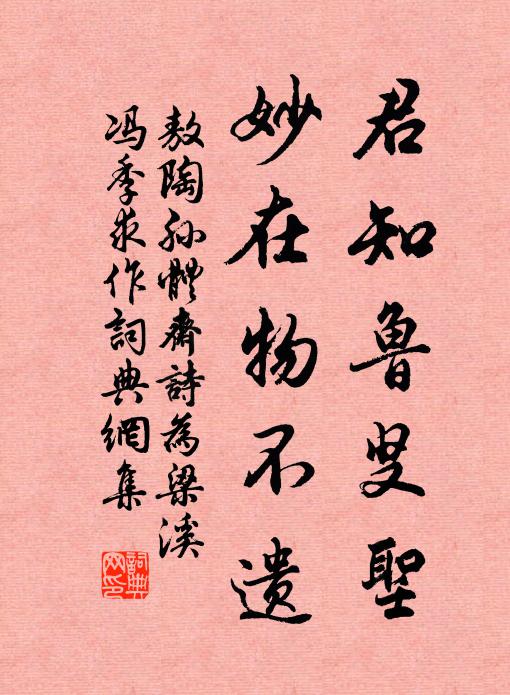 君知鲁叟聖
妙在物不遗
敖陶孙體齋詩為梁溪
冯季求作詞典網集
詞典
网印